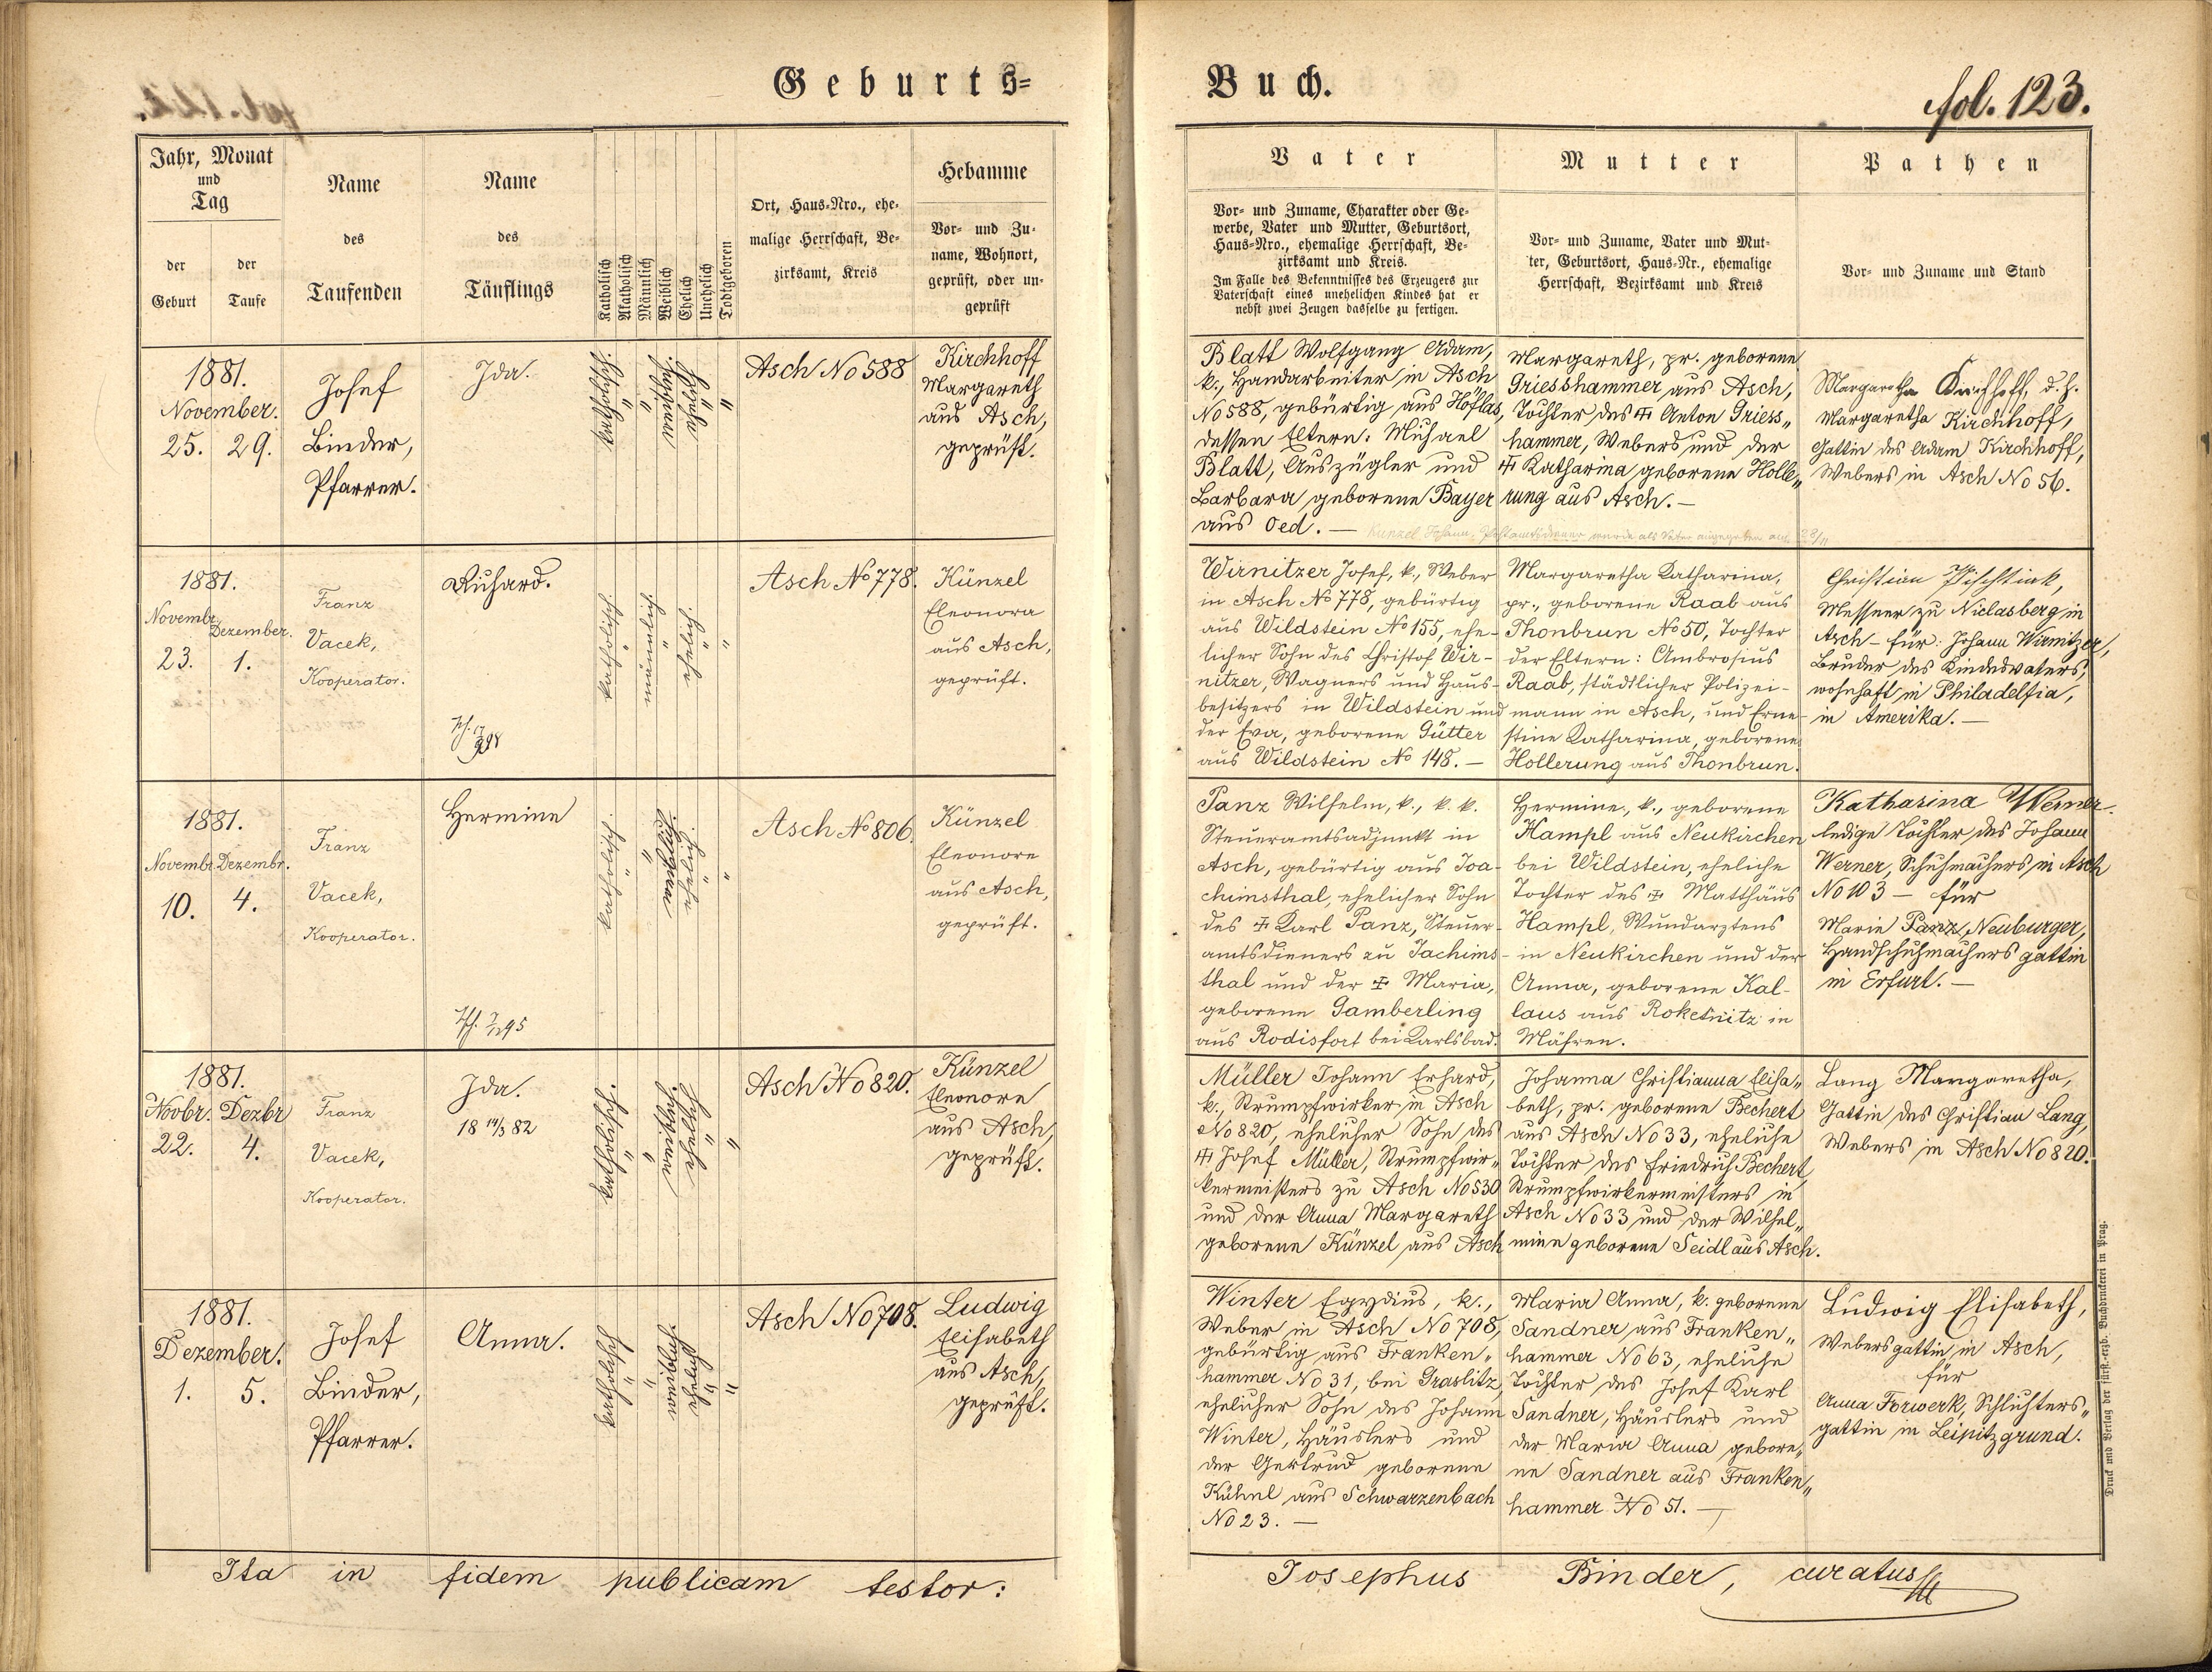 Geburts=
Buch.
fol. 123.
Jahr, Monat
und
Tag
der
Geburt
der
Taufe
Name
des
Taufenden
Name
des
Täuflings
Katholisch
Akatholisch
Männlich
Weiblich
Ehelich
Unehelich
Todtgeboren
Ort, Haus-Nro., ehe-
malige Herrschaft, Be-
zirksamt, Kreis
Hebamme
Vor- und Zu-
name, Wohnort,
geprüft, oder un-
geprüft
Vater
Vor- und Zuname, Charakter oder Ge-
werbe, Vater und Mutter, Geburtsort,
Haus-Nro., ehemalige Herrschaft, Be-
zirksamt und Kreis.
Im Falle des Bekenntnisses des Erzeugers zur
Vaterschaft eines unehelichen Kindes hat er
nebst zwei Zeugen dasselbe zu fertigen.
Mutter
Vor- und Zuname, Vater und Mut-
ter, Geburtsort, Haus-Nr., ehemalige
Herrschaft, Bezirksamt und Kreis
Pathen
Vor- und Zuname und Stand
1881.
November.
25. 29.
Josef
Binder,
Pfarrer.
Ida.
katholisch.
"
"
weiblich.
ehelich.
"
"
Asch No 588
Kirchhoff
Margareth
aus Asch,
geprüft.
Blatt Wolfgang Adam,
k., Handarbeiter in Asch
No 588, gebürtig aus Höflas,
dessen Eltern: Michael
Blatt, Auszügler und
Barbara geborene Bayer
aus Oed. —
Künzel Johann, Postamtsdiener wurde als Vater angegeben am 29/11
Margareth, pr. geborene
Griesshammer aus Asch,
Tochter des ✝ Anton Griess„
hammer, Webers und der
✝ Katharina geborene Holle„
rung aus Asch. —
Margaretha Kirchhoff, d. h.
Margaretha Kirchhoff,
Gattin des Adam Kirchhoff,
Webers in Asch No 56.
1881.
Novembr. Dezember.
23. 1.
Franz
Vacek,
Kooperator.
Richard.
katholisch.
"
männlich.
"
ehelich.
"
"
Asch No 778.
Künzel
Eleonora
aus Asch,
geprüft.
Wirnitzer Josef, k., Weber
in Asch No 778, gebürtig
aus Wildstein No 155, ehe-
licher Sohn des Christof Wir-
nitzer, Wagners und Haus-
besitzers in Wildstein und
der Eva, geborene Gütter
aus Wildstein No 148. —
Margaretha Katharina,
pr., geborene Raab aus
Thonbrun No 50, Tochter
der Eltern: Ambrosius
Raab, städtlicher Polizei-
mann in Asch, und Erne-
stine Katharina, geborene
Hollerung aus Thonbrun.
Christian
Messner zu Niclasberg in
Asch – für: Johann Wirnitzer,
Bruder des Kindesvaters,
wohnhaft in Philadelfia,
in Amerika. —
1881.
Novembr. Dezembr.
10. 4.
Franz
Vacek,
Kooperator.
Hermine
katholisch.
"
"
weiblich.
ehelich.
"
"
Asch No 806.
Künzel
Eleonore
aus Asch,
geprüft.
Panz Wilhelm, k., k. k.
Steueramtsadjunkt in
Asch, gebürtig aus Joa-
chimsthal, ehelicher Sohn
des ✝ Karl Panz, Steuer-
amtsdieners zu Jachims-
thal und der ✝ Maria,
geborene Gamberling
aus Rodisfort bei Karlsbad.
Hermine, k., geborene
Hampl aus Neukirchen
bei Wildstein, eheliche
Tochter des ✝ Matthäus
Hampl, Wundarztens
in Neukirchen und der
Anna, geborene Kal-
laus aus Roketnitz in
Mähren.
Katharina Werner.
ledige Tochter des Johann
Werner, Schuhmachers in Asch
No 103 — für
Marie Panz, Neuburger,
Handschuhmachers gattin
in Erfurt. —
1881.
Novbr. Dezbr
22. 4.
Franz
Vacek,
Kooperator.
Ida.
18 14/3 82
katholisch.
"
"
weiblich.
ehelich.
"
"
Asch No 820.
Künzel
Eleonore
aus Asch,
geprüft.
Müller Johann Erhard,
k., Strumpfwirker in Asch
No 820, ehelicher Sohn des
✝ Josef Müller, Strumpfwir„
kermeisters zu Asch No 530
und der Anna Margareth
geborene Künzel aus Asch
Johanna Christianna Elisa„
beth, pr. geborene Bechert
aus Asch No 33, eheliche
Tochter des Friedrich Bechert,
Strumpfwirkermeisters in
Asch No 33 und der Wilhel„
mine geborene Seidl aus Asch.
Lang Margaretha,
Gattin des Christian Lang,
Webers in Asch No 820.
1881.
Dezember.
1. 5.
Josef
Binder,
Pfarrer.
Anna.
katholisch
"
"
weiblich.
ehelich
"
"
Asch No 708.
Ludwig
Elisabeth
aus Asch,
geprüft.
Winter Egydius, k.,
Weber in Asch No 708,
gebürtig aus Franken„
hammer No 31, bei Graslitz,
ehelicher Sohn des Johann
Winter, Häuslers und
der Gertrud geborene
Kühnl aus Schwarzenbach
No 23. —
Maria Anna, k. geborene
Sandner aus Franken„
hammer No 63, eheliche
Tochter des Josef Karl
Sandner, Häuslers und
der Maria Anna gebore„
ne Sandner aus Franken„
hammer No 51. —
Ludwig Elisabeth,
Webersgattin in Asch,
für
Anna Forwerk, Schlichters„
gattin in Leipitzgrund.
Ita in fidem publicam testor:
Josephus Binder, curatus
Druck und Verlag der fürst.-erzb. Buchdruckerei in Prag.